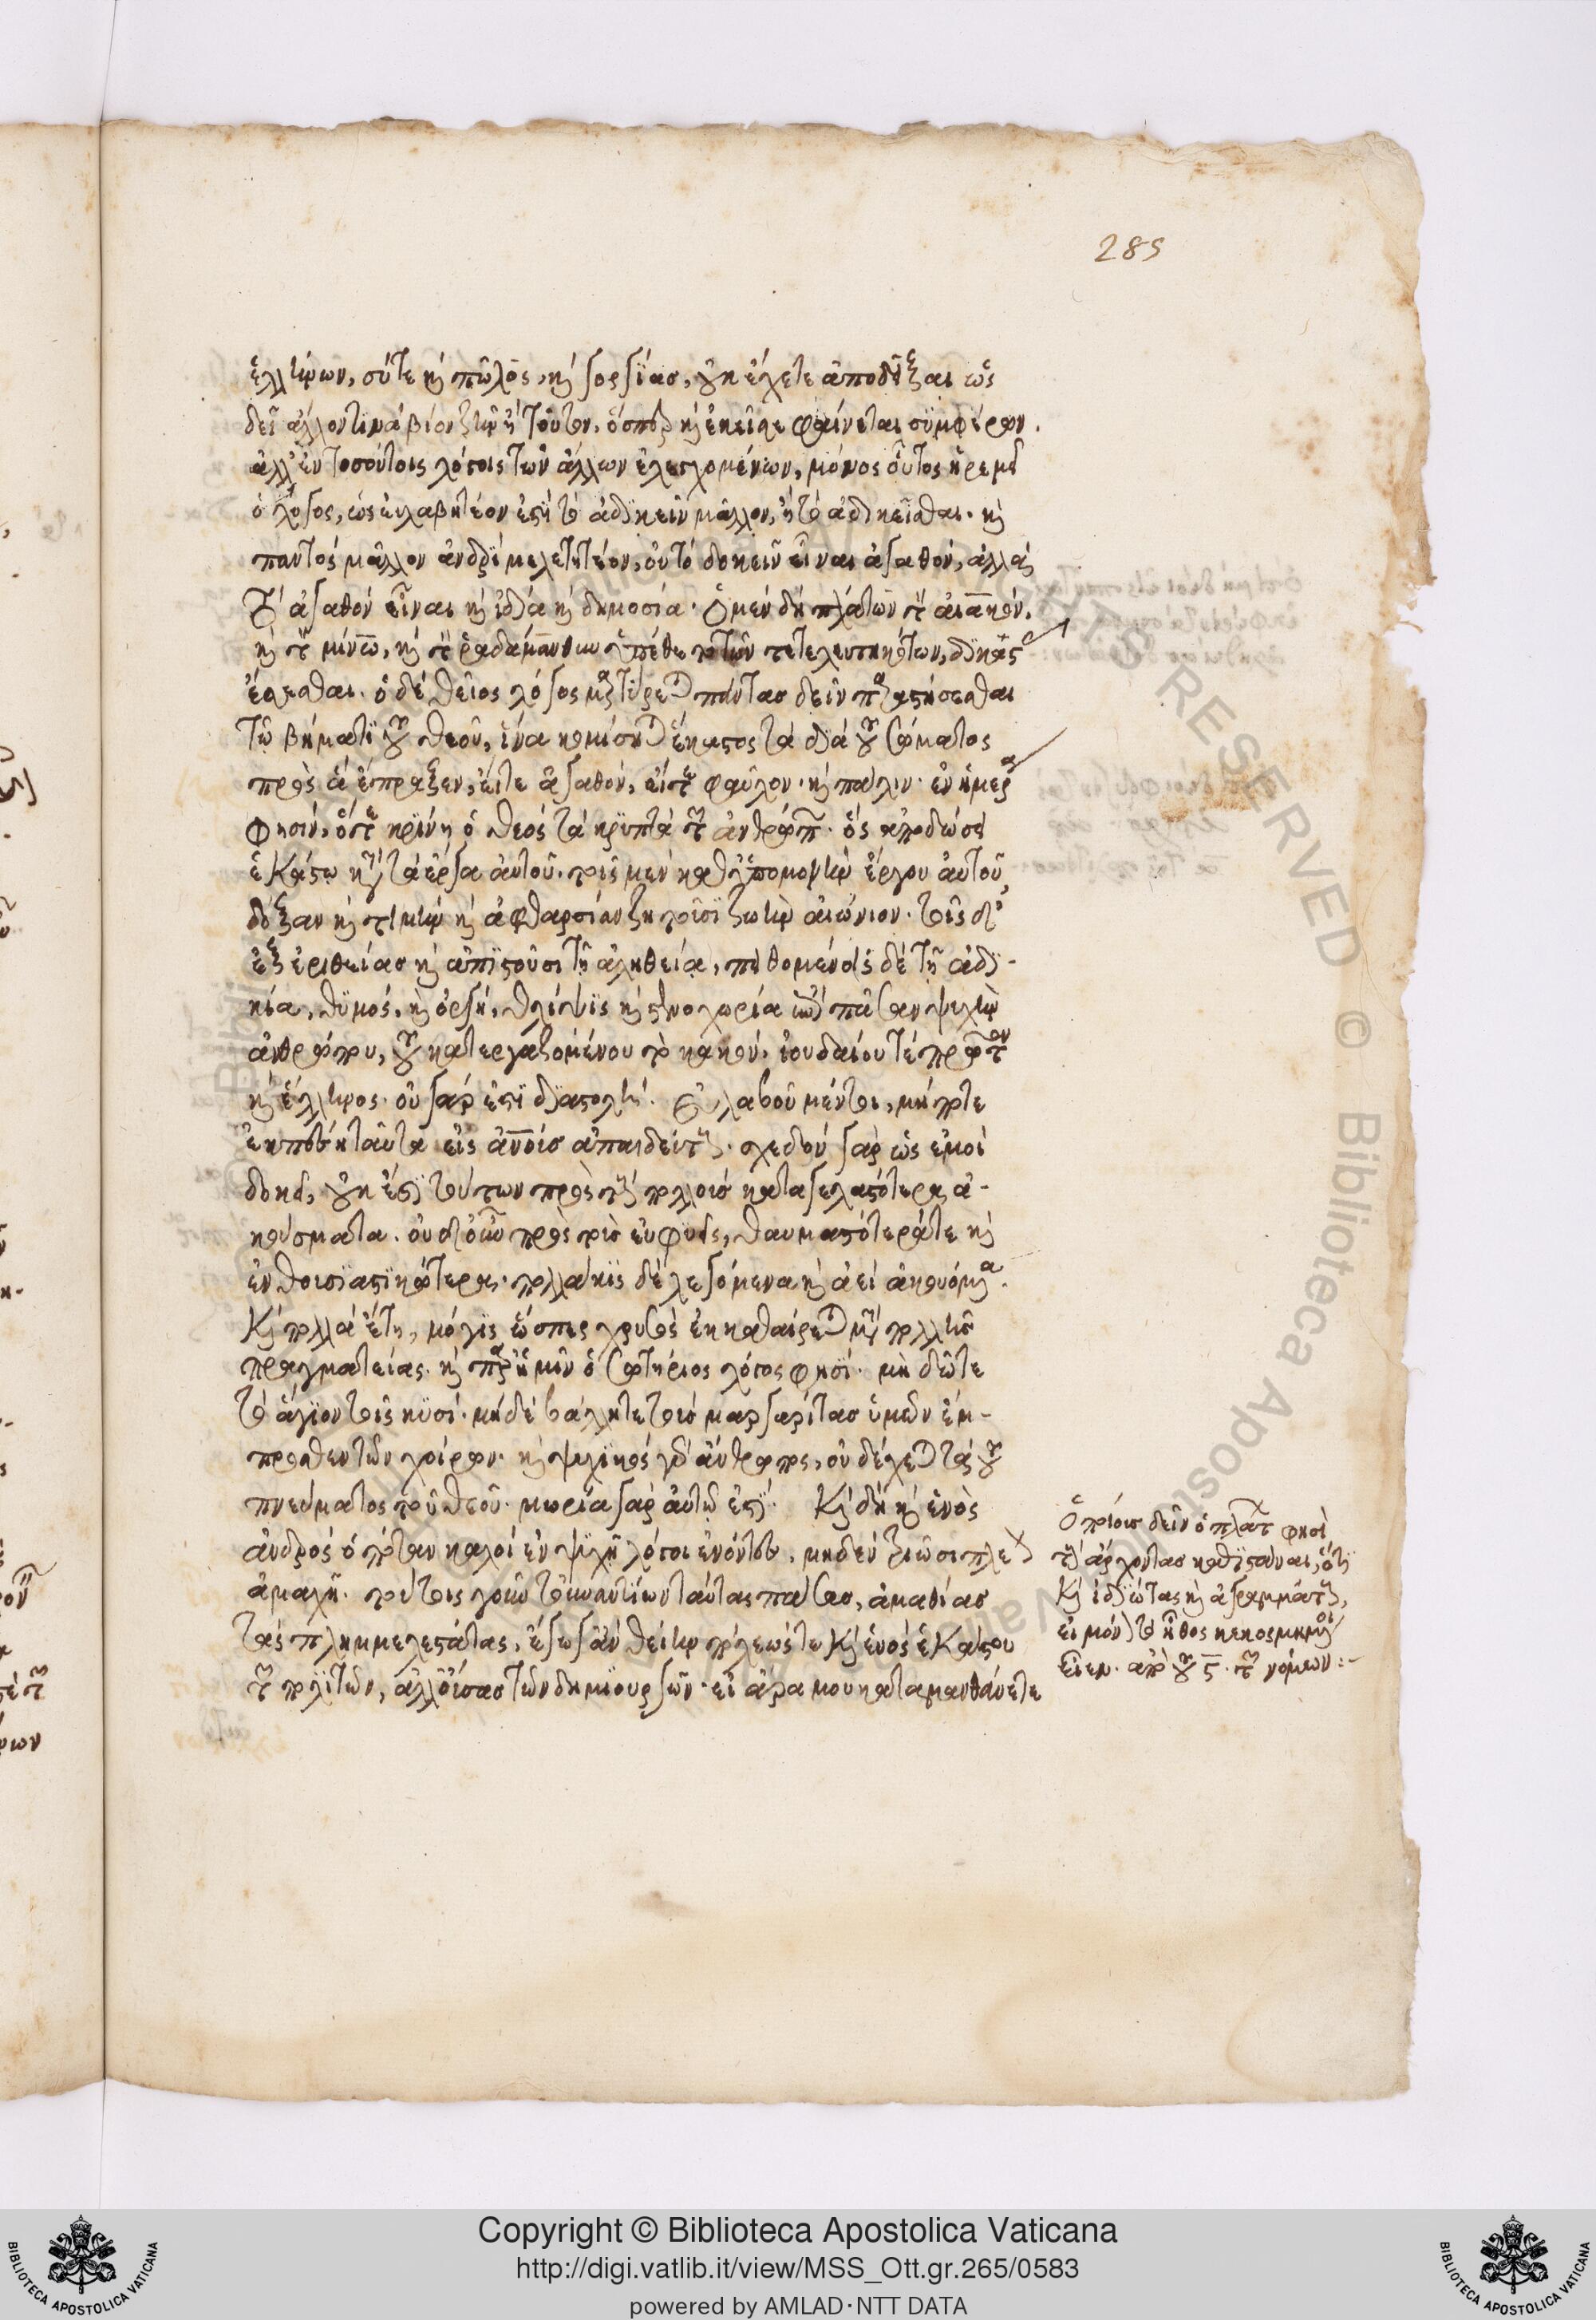 285
ἑλλήνων, σύτε καὶ πῶλος, καὶ γοργίας, οὐκ ἔχετε ἀποδεῖξαι ὡς
δεῖ ἄλλον τινὰ βίον ζῆν ἢ τοῦτον, ὅσπερ καὶ ἐκεῖσε φαίνεται συμφέρων.
ἀλλ' ἐν τοσούτοις λόγοις τῶν ἄλλων ἐλεγχομένων, μόνος οὗτος ἠρεμεῖ
ὁ λόγος, ὡς εὐλαβητέον ἐστὶ τὸ ἀδικεῖν μᾶλλον, ἢ τὸ ἀδικεῖσθαι. καὶ
παντὸς μᾶλλον ἀνδρὶ μελετητέον, οὐ τὸ δοκεῖν εἶναι ἀγαθόν, ἀλλὰ
τὸ ἀγαθὸν εἶναι καὶ ἰδία καὶ δημοσία. Ὁ μὲν δὴ πλάτων τὸν αἰακόν,
καὶ τὸν μίνω, καὶ τὸν ῥαδάμανθυν ὑπέθετο τῶν τετελευτηκότων, δικαστὰς
ἔσεσθαι. ὁ δὲ θεῖος λόγος μαρτύρεται πάντας δεῖν παραστήσεσθαι
τῷ βήματι τοῦ θεοῦ, ἵνα κομίσηται ἕκαστος τὰ διὰ τοῦ σώματος
πρὸς ἃ ἔπραξεν, εἴτε ἀγαθόν, εἴτε φαῦλον. καὶ πάλιν. ἐν ἡμέρα
φησίν, ὅτε κρίνη ὁ θεὸς τὰ κρυπτὰ τῶν ἀνθρώπων. ὃς ἀποδώσει
ἑκάστω κατὰ τὰ ἔργα αὐτοῦ. τοῖς μὲν καθ' ὑπομονὴν ἔργου αὐτοῦ,
δόξαν καὶ τιμὴν καὶ ἀφθαρσίαν ζητοῦσι ζωὴν αἰώνιον. τοῖς δ'
ἐξ ἐριθείας καὶ ἀπιστοῦσι τῇ ἀληθεία, πειθομένοις δὲ τῇ ἀδι-
κία, θυμός, καὶ ὀργή, θλίψις καὶ στενοχωρία ἐπὶ πᾶσαν ψυχὴν
ἀνθρώπου, τοῦ κατεργαζομένου τὸ κακόν. ἰουδαίου τὲ πρῶτον
καὶ ἕλληνος. οὐ γάρ ἐστι διαστολή. Εὐλαβοῦ μέντοι, μή ποτε
ἐκπέσῃ ταῦτα εἰς ἀνθρώπους ἀπαιδεύτους. σχεδὸν γὰρ ὡς ἐμοὶ
δοκεῖ, οὐκ ἔστι τούτων πρὸς τοὺς πολλοὺς καταγελαστότερα ἀ-
κούσματα. οὐδ' οὖν πρὸς τοὺς εὐφυεῖς, θαυμαστότερά τε καὶ
ἐνθουσιαστικώτερα. πολλάκις δὲ λεγόμενα καὶ ἀεὶ ἀκουόμενα.
Καὶ πολλὰ ἔτη, μόγις ὥσπερ χρυσὸς ἐκκαθαίρεται μετὰ πολλῆς
πραγματείας. καὶ παρ' ἡμῖν ὁ σωτήριος λόγος φησί. μὴ δῶτε
τὸ ἅγιον τοῖς κυσί. μηδὲ βάλητε τοὺς μαργαρίτας ὑμῶν ἔμ-
προσθεν τῶν χοίρων. καὶ ψυχικὸς γὰρ ἄνθρωπος, οὐ δέχεται τὰ τοῦ
πνεύματος τοῦ θεοῦ. μωρία γὰρ αὐτῷ ἐστί. Καὶ δὴ καὶ ἑνὸς
ἀνδρὸς ὁπόταν καλοὶ ἐν ψυχῇ λόγοι ἐνόντες, μηδὲν ποιῶσι πλέον
ἀμαχῆ. τούτοις γοῦν τοὐναντίον ταύτας πάσας, ἀμαθίας
τὰς πλημμελεστάτας, ἔγωγ' ἂν θείην πόλεώς τε καὶ ἑνὸς ἑκάστου
τῶν πολιτῶν, ἀλλ' οὐ τὰς τῶν δημιουργῶν. εἰ ἄρα μου καταμανθάνετε
Ὁποίους δεῖν ὁ πλάτων φησὶ
τοὺς ἄρχοντας καθιστάναι, ὅτι
Καὶ ἰδιώτας καὶ ἀγραμμάτους,
εἰ μόνον τὸ ἦθος κεκοσμημένοι
εἶεν. ἀπὸ τοῦ γ. τῶν νόμων:-
Copyright © Biblioteca Apostolica Vaticana
http://digi.vatlib.it/view/MSS_Ott.gr.265/0583
powered by AMLAD·NTT DATA